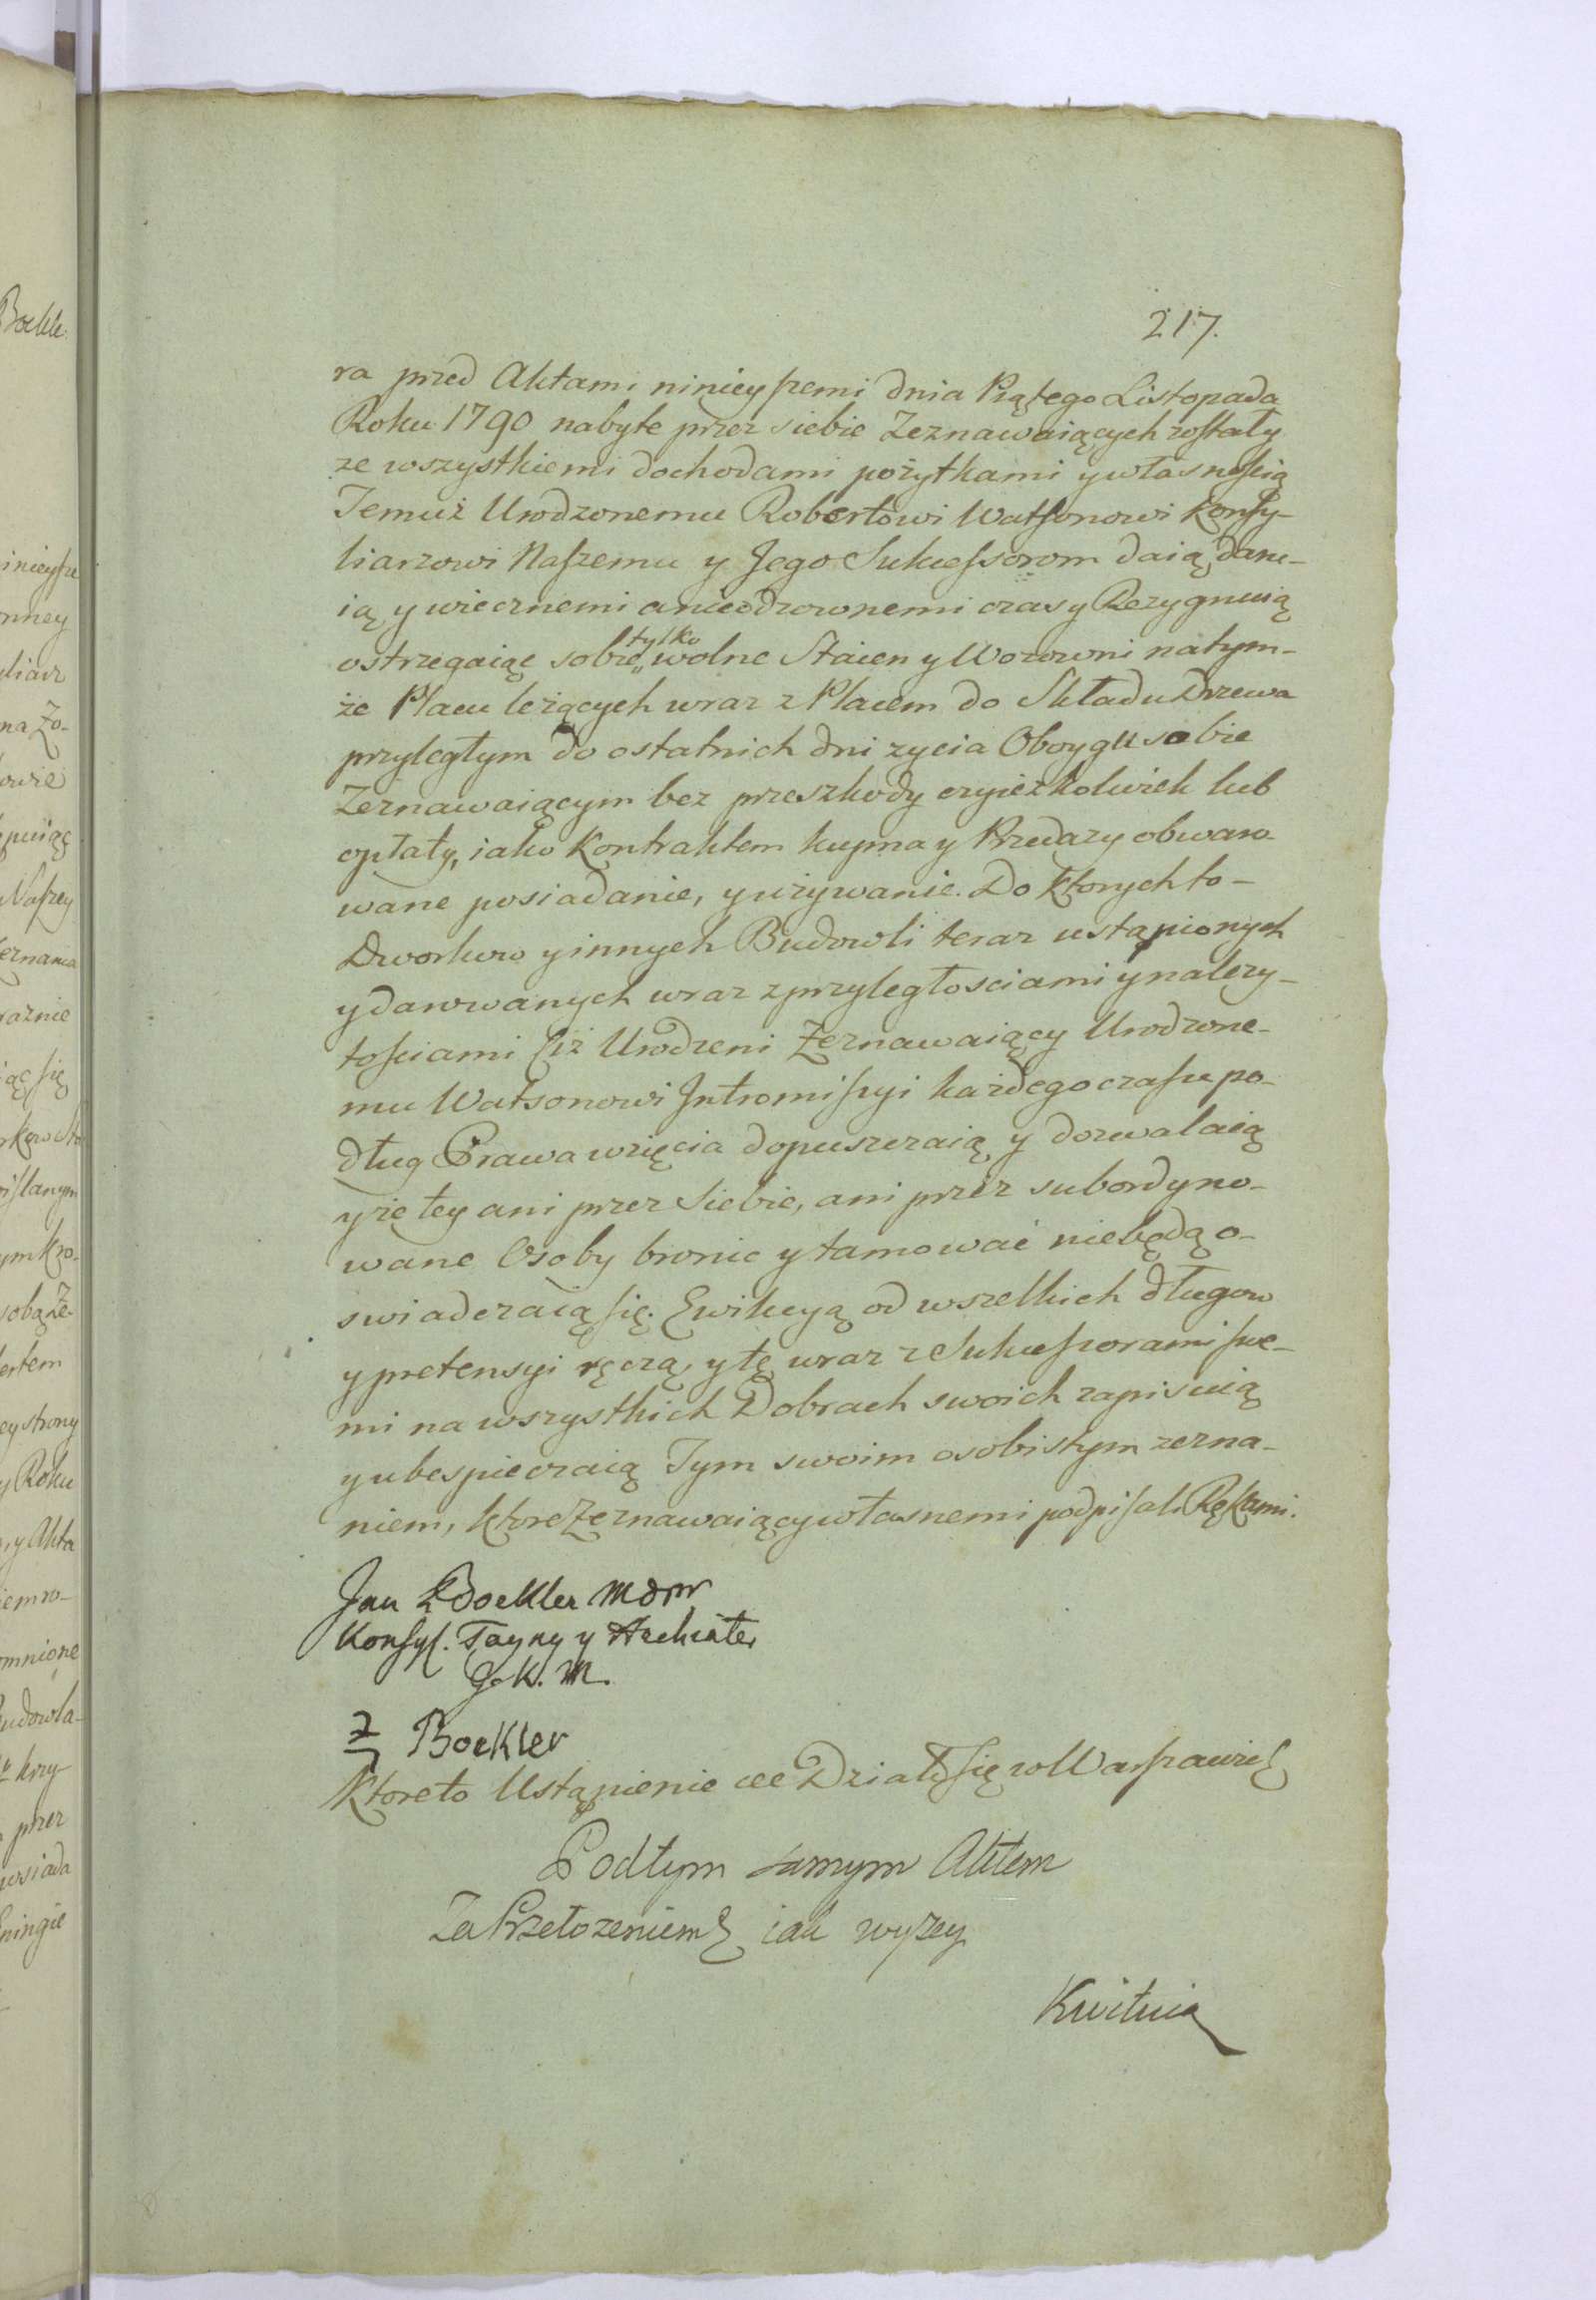 217.
ra przed Aktami ninieyszemi dnia Piątego Listopada
Roku 1790 nabyte przez siebie Zeznawaiących zostały
ze wszystkiemi dochodami pożytkami y własnością
Temuż Urodzonemu Robertowi Watsonowi Konsy-
liarzowi Naszemu y Jego Sukcessorom daią, daru-
ią y wiecznemi a nieodzownemi czasy Rezygnuią
ostrzegaiąc sobie tylko wolne Staien y Wozowni natym-
że Placu leżących wraz z Placem do Składu Drzewa
przyległym do ostatnich dni zycia Oboygu sobie
Zeznawaiącym bez przeszkody czyieżkolwiek lub
opłaty, iako Kontraktem kupna y Przedazy obwaro-
wane posiadanie, y używanie. Do ktorychto-
Dworkow y innych Budowli teraz ustąpionych
y darowanych wraz z przyległosciami y nalezy-
tościami Ciż Urodzeni Zeznawaiący Urodzone-
mu Watsonowi Intromissyi każdego czasu po-
dług Prawa wzięcia dopuszczaią y dozwalaią
y że tey ani przez Siebie, ani przez subordyno-
wane Osoby bronic y tamować niebędą o-
swiadczaią się. Ewikcyą od wszelkich długow
y pretensyi ręczą, y tę wraz z Sukcessorami swe-
mi na wszystkich Dobrach swoich zapisuią
y ubespieczaią Tym swoim osobistym zezna-
niem, ktore Zeznawaiący własnemi podpisali Rękami.
Jan Boekler
Konsyl. Tayny y Archiater
J. K. M.
Z Boekler
Ktoreto Ustąpienie Działo się w Warszawie
Podtym samym Aktem
Za Przełozeniem iak wyzey
Kwituią
Boekle
inieysze
nney
liarz
na Zo-
owie
puiąc
Naszey
eznania
raznie
iąc się
ym Kro-
sobą Ze-
ey strony
y Roku
ny Akta
iem ro-
omnione
Budowla-
przez